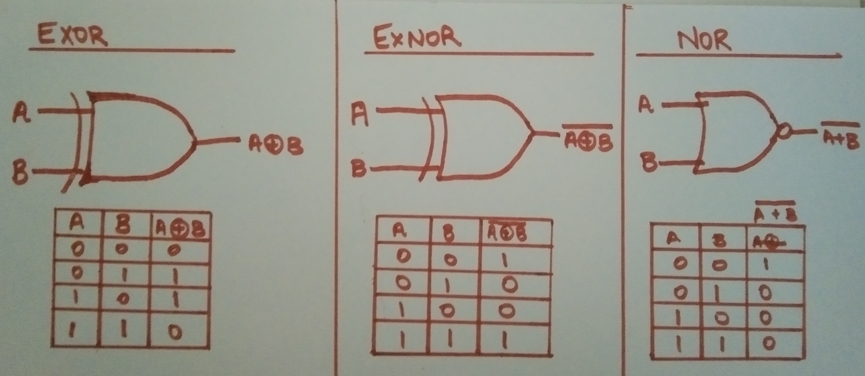 EXOR
A
B
A⊕B
A B A⊕B
0 0 0
0 1 1
1 0 1
1 1 0
ExNOR
A
B
A̅⊕̅B̅
A B A̅⊕̅B̅
0 0 1
0 1 0
1 0 0
1 1 1
NOR
A
B
A̅+̅B̅
A̅+̅B̅
A B A⊕
0 0 1
0 1 0
1 0 0
1 1 0